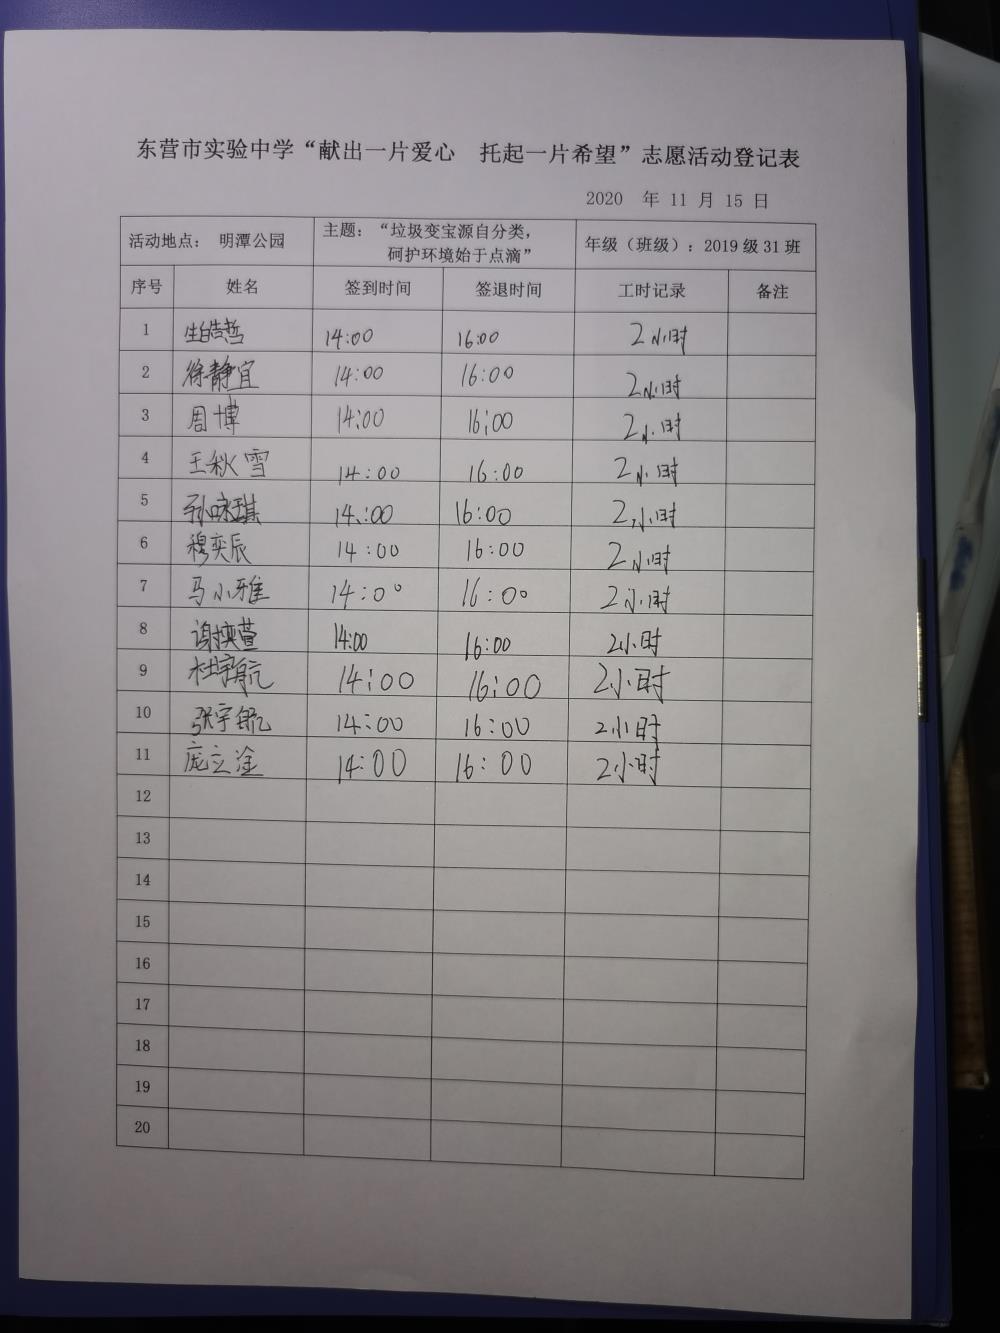 东营市实验中学“献出一片爱心 托起一片希望”志愿活动登记表
2020 年 11 月 15 日
活动地点： 明潭公园 主题：“垃圾变宝源自分类， 年级（班级）：2019 级 31 班
砢护环境始于点滴”
序号 姓名 签到时间 签退时间 工时记录 备注
1 生皓哲 14:00 16:00 2小时
2 徐静宜 14:00 16:00 2小时
3 周博 14:00 16:00 2小时
4 王秋雪 14:00 16:00 2小时
5 孙咏琪 14:00 16:00 2小时
6 穆奕辰 14:00 16:00 2小时
7 马小雅 14:00 16:00 2小时
8 谢 萱 14:00 16:00 2小时
9 杜宇航 14:00 16:00 2小时
10 张宇航 14:00 16:00 2小时
11 庞立淦 14:00 16:00 2小时
12
13
14
15
16
17
18
19
20